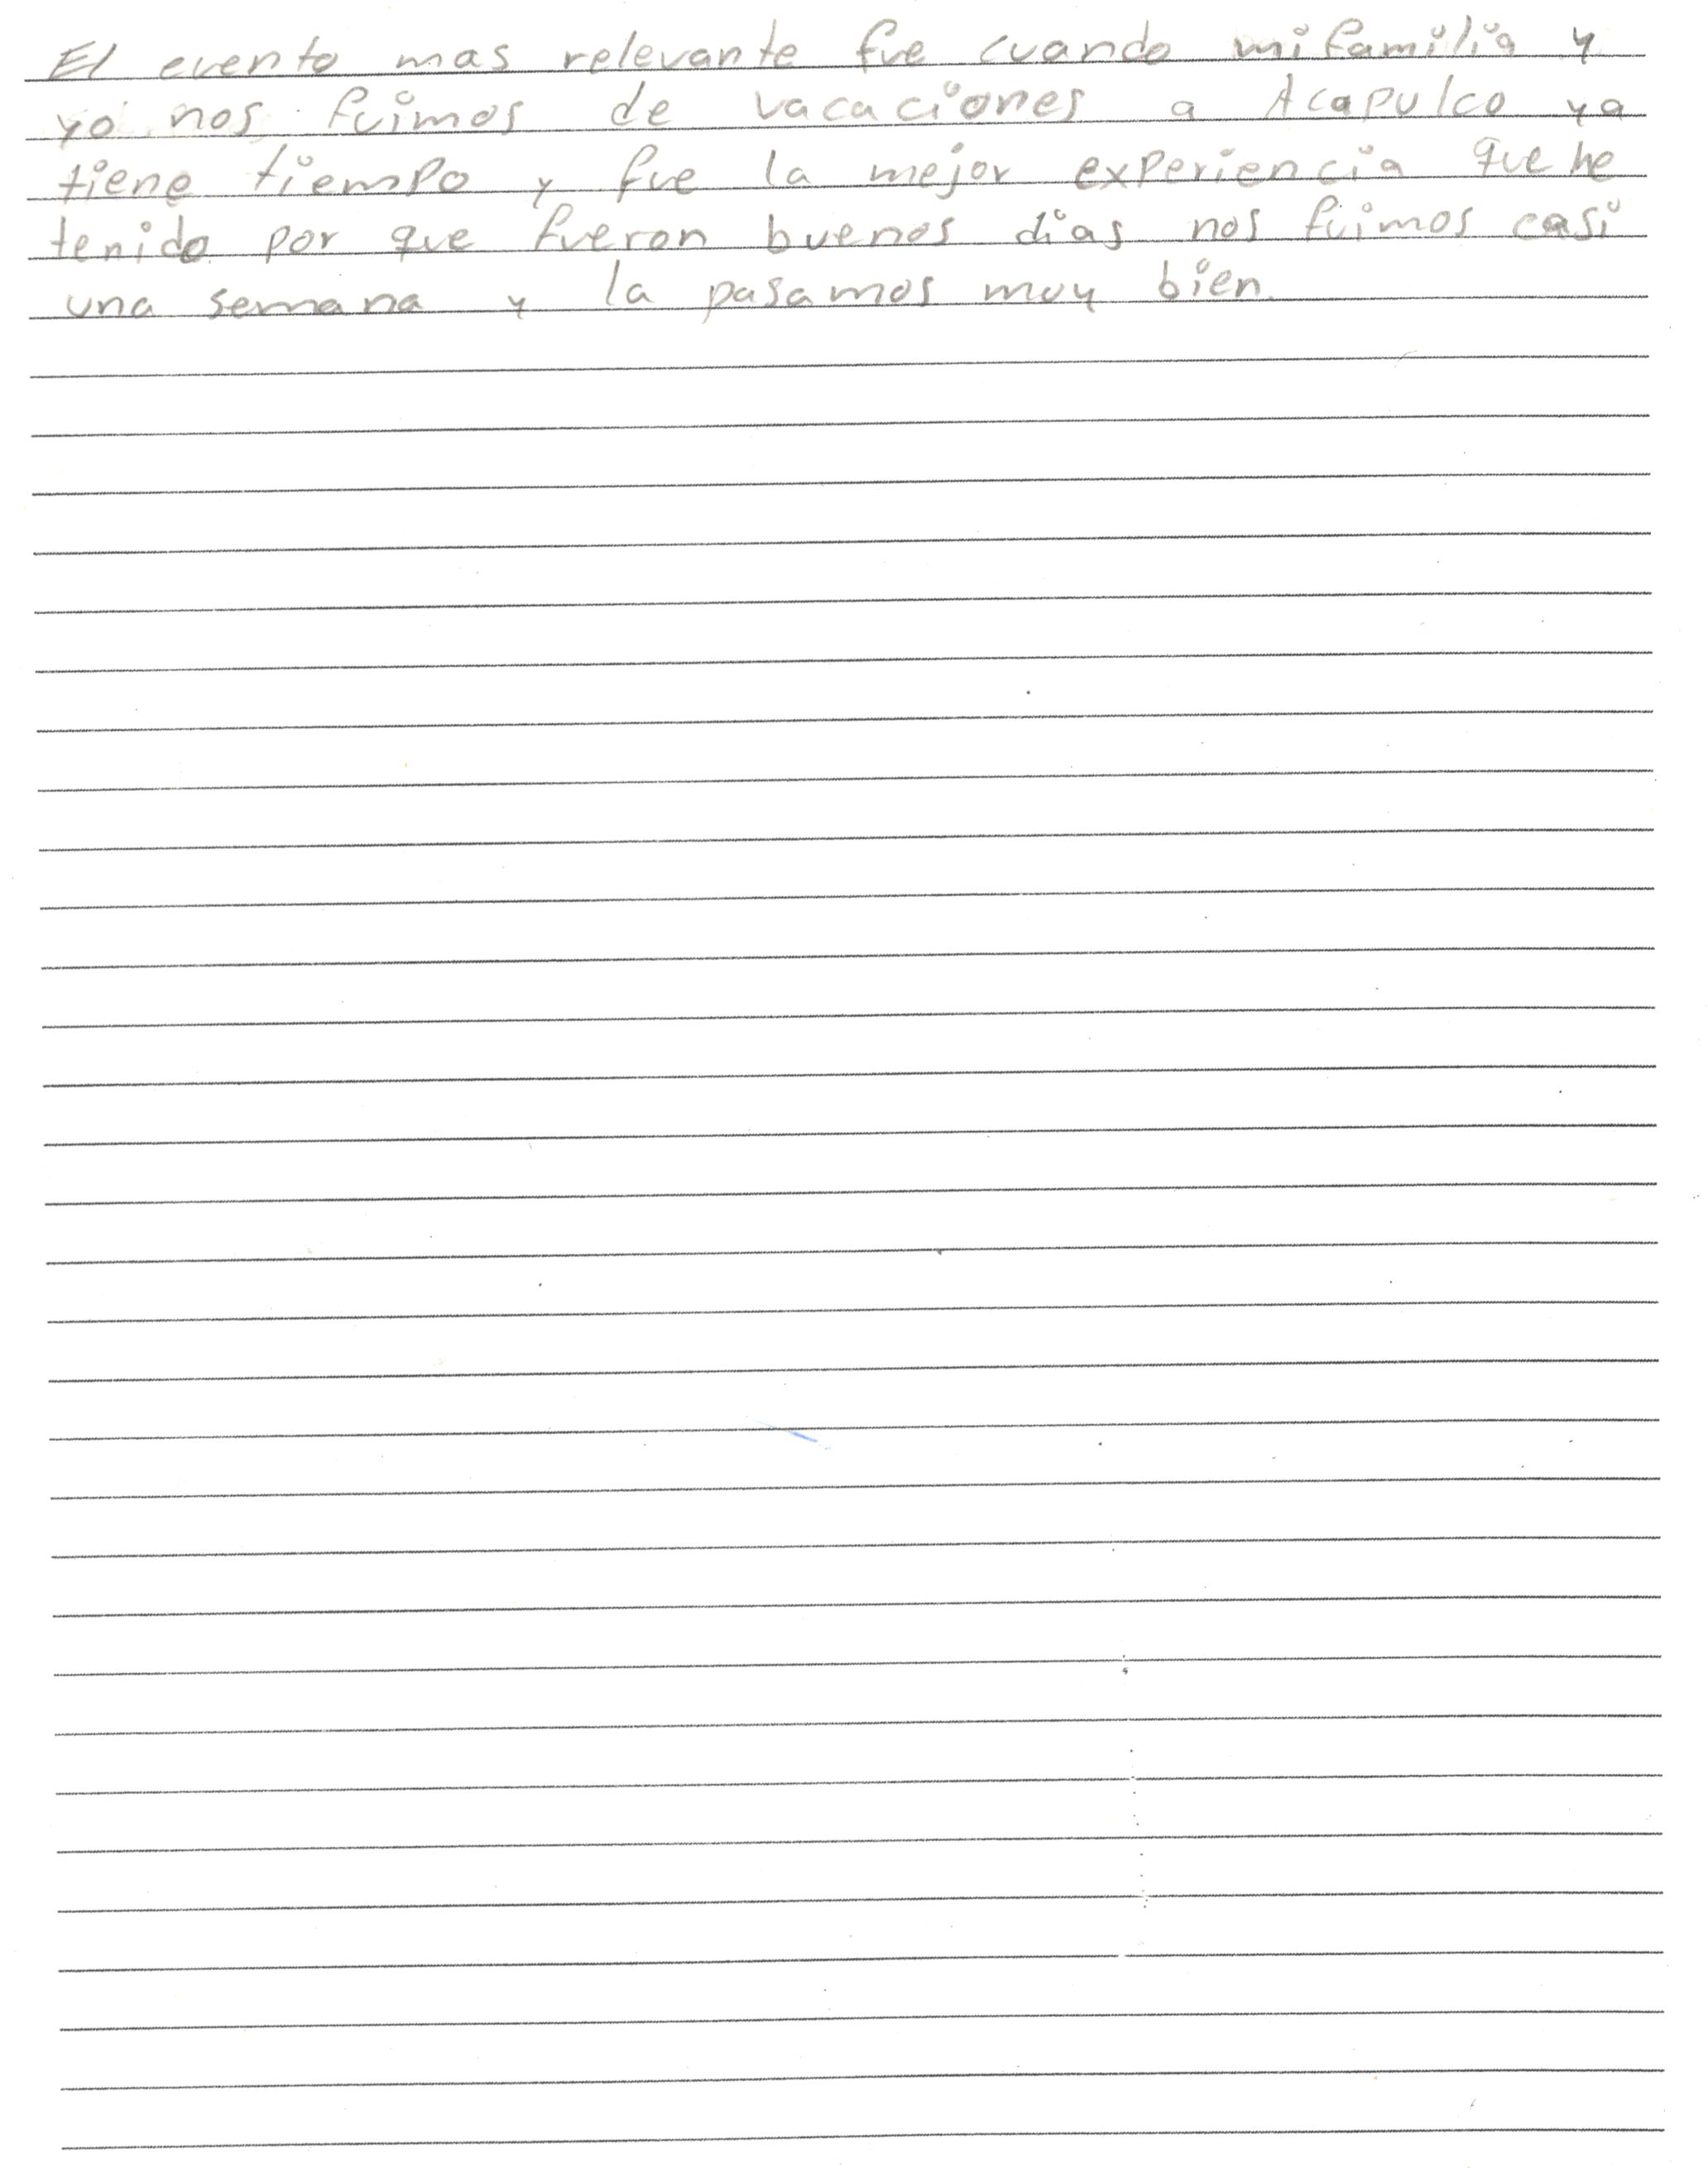 El evento mas relevante fue cuando mi familia y
yo nos fuimos de vacaciones a Acapulco ya
tiene tiempo y fue la mejor experiencia que he
tenido por que fueron buenos dias nos fuimos casi
una semana y la pasamos muy bien.